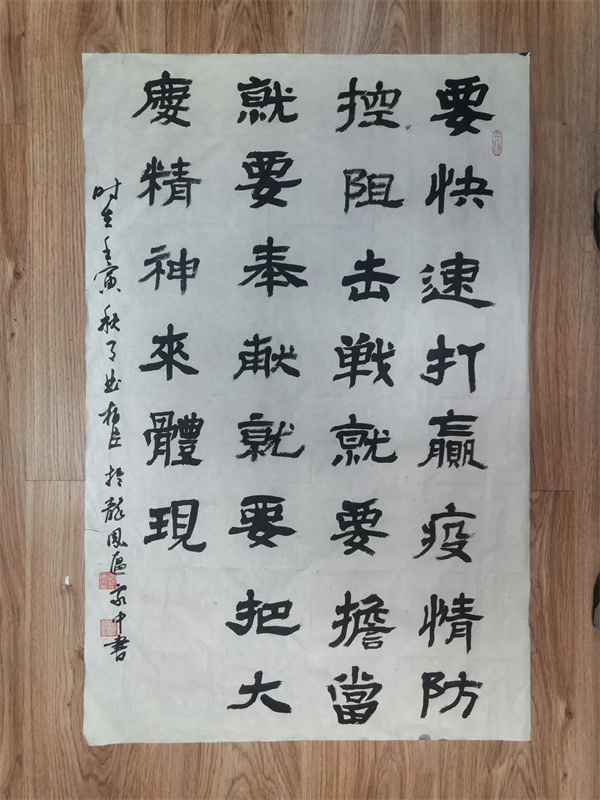 要快速打贏疫情防
控阻击戦就要擔當
就要奉献就要把大
慶精神來體現
时在壬寅秋月柏臣於龍鳳區家中書